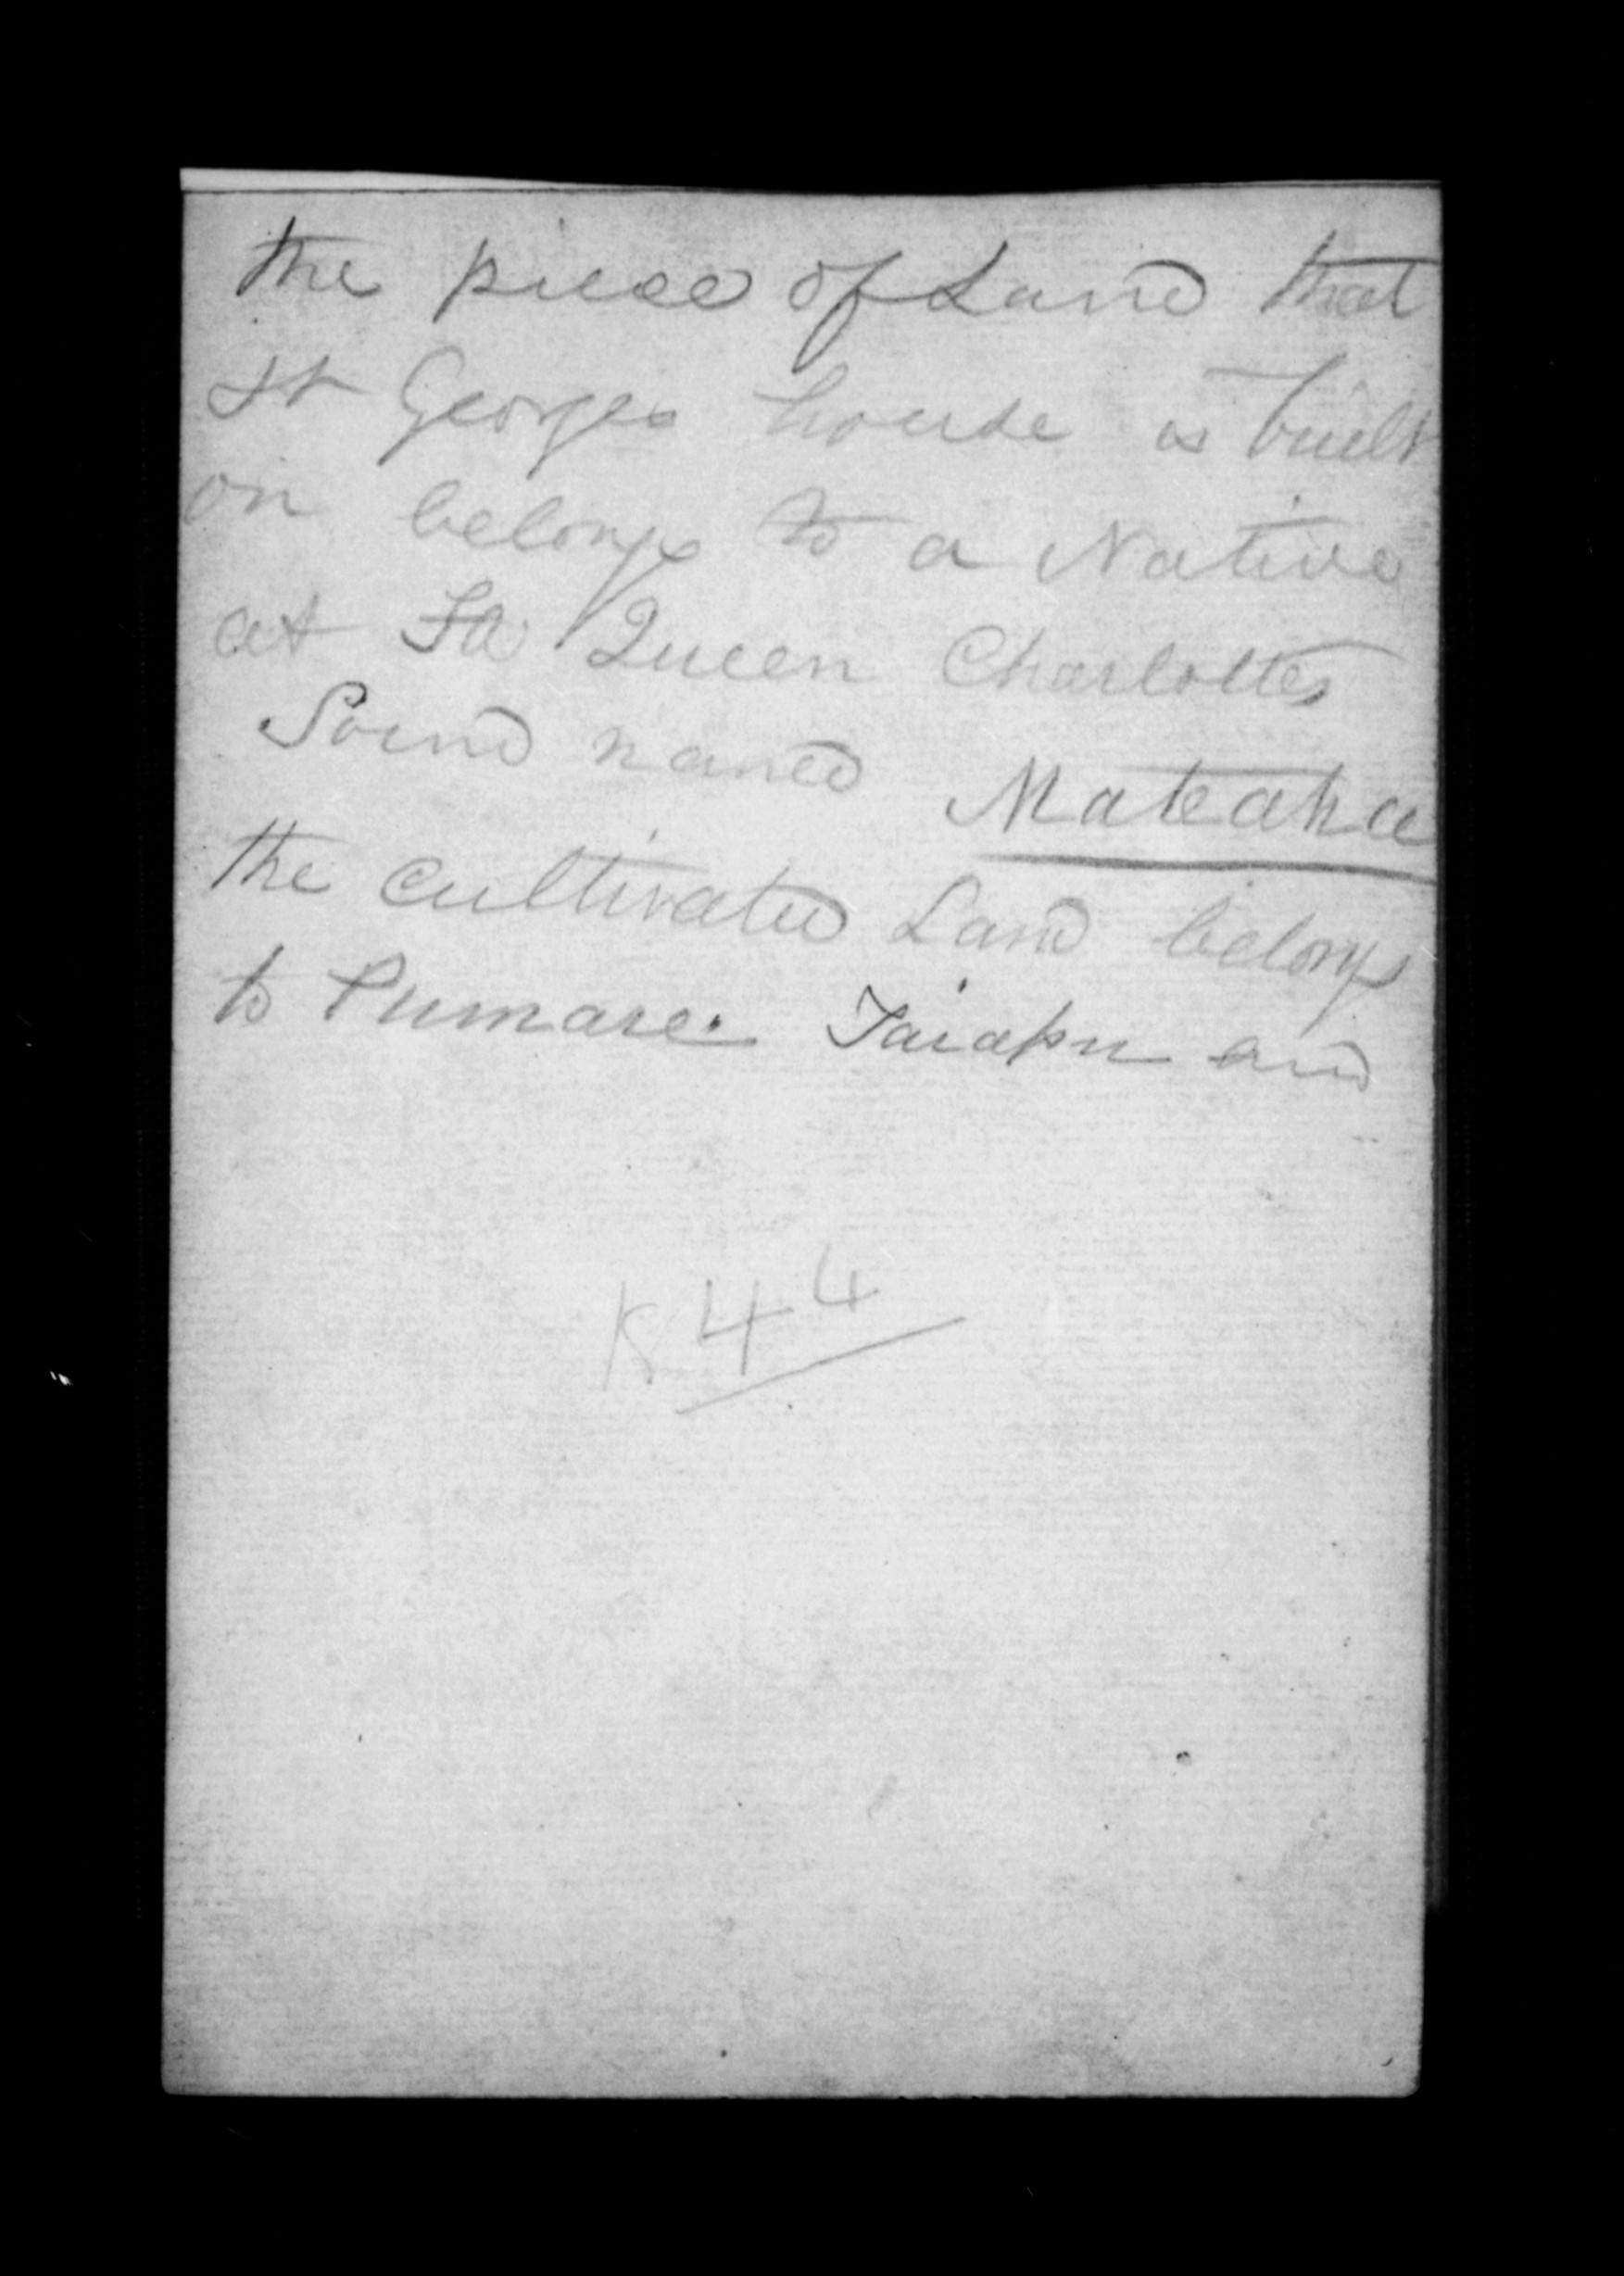 the piece of Land that
St Georges house is built
on belongs to a Native
at Queen Charlottes
Sound named Mateaha
the cultivated Land belongs
to Pumare. Taiapu and
K 44